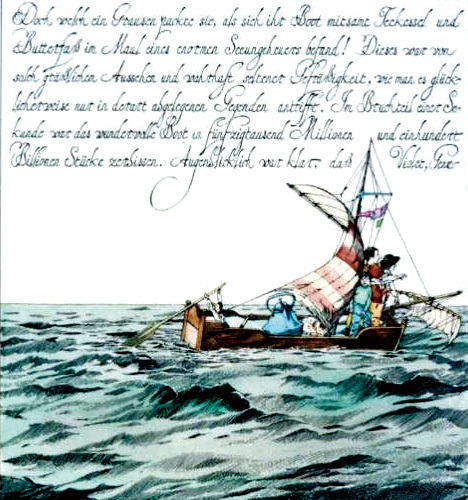 Doch welch ein Grausen packte sie, als sich ihr Boot mitsamt Teekessel und
Butterfaß im Maul eines enormen Seeungeheuers befand! Dieses war von
solch gräßlichem Aussehen und wahrhaft seltener Gefräßigkeit, wie man es glück-
licherweise nur in derart abgelegenen Gegenden antrifft. Im Bruchteil einer Se-
kunde war das wundervolle Boot in fünfzigtausend Millionen und einhundert
Billionen Stücke zerbissen. Augenblicklich war klar, daß Violet,